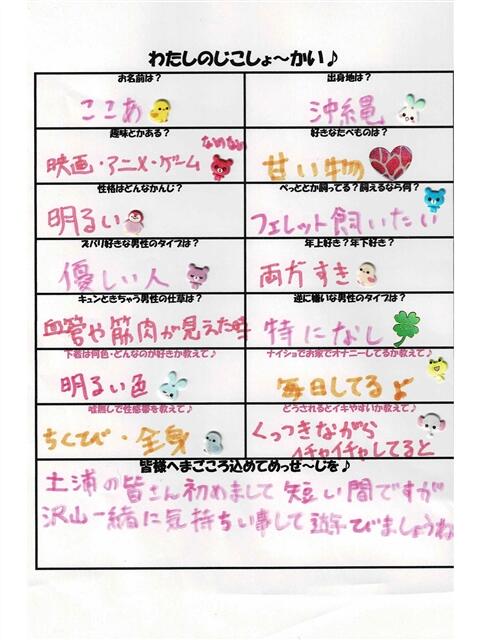 わたしのじこしょ～かい♪
お名前は？ 出身地は？
ここあ 沖縄
趣味とかある？ 好きなたべものは？
なめなめ
映画・アニメ・ゲーム 甘い物
性格はどんなかんじ？ ぺっととか飼ってる？飼えるなら何？
明るい フェレット飼いたい
ズバリ好きな男性のタイプは？ 年上好き？年下好き？
優しい人 両方すき
キュンときちゃう男性の仕草は？ 逆に嫌いな男性のタイプは？
血管や筋肉が見えた時 特になし
下着は何色・どんなのが好きか教えて♪ ナイショでお家でオナニーしてるか教えて♪
明るい色 毎日してるよ
嘘無しで性感帯を教えて♪ どうされるとイキやすいか教えて♪
ちくてび・全身 くっつきながら
イチャイチャしてると
皆様へまごころ込めてめっせ～じを♪
土浦の皆さん初めまして短い間ですが
沢山一緒に気持ちい事して遊てびましょうね